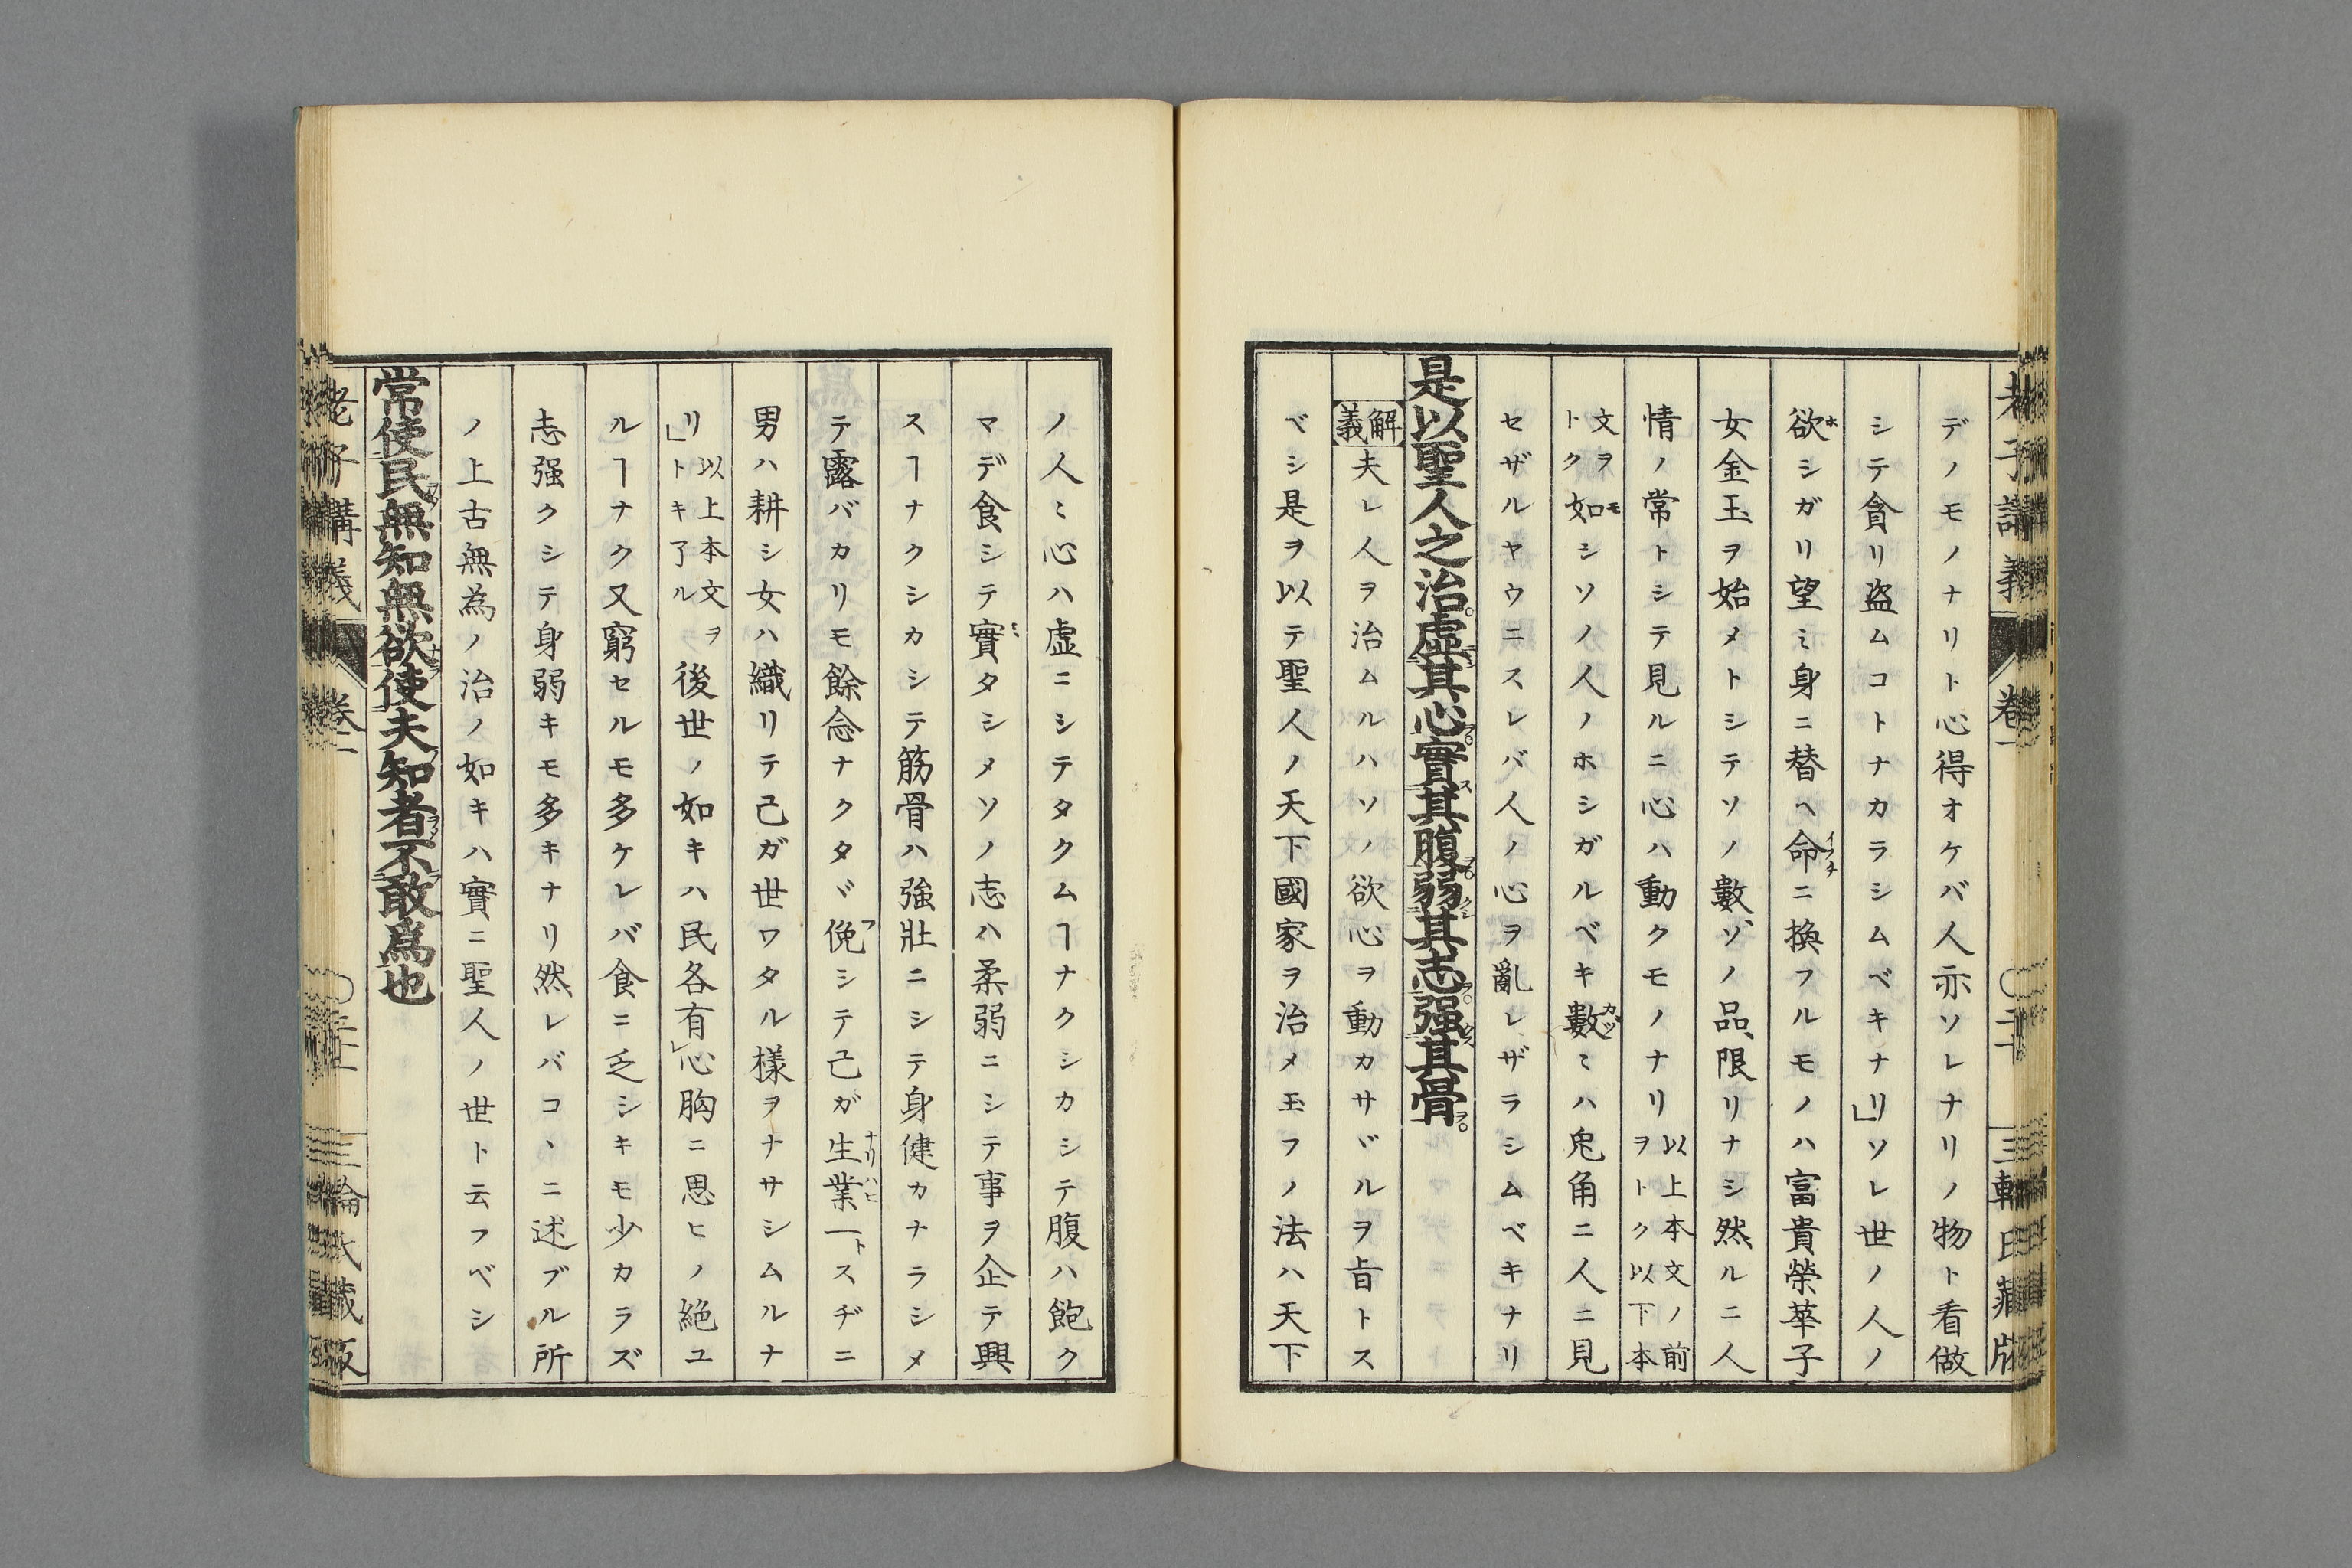 老子講義 卷一 三輪氏藏版
デノモノナリト心得オケバ人亦ソレナリノ物ト看做
シテ貪リ盜ムコトナカラシムベキナリ」ソレ世ノ人ノ
欲シガリ望ミ身ニ替ヘ命ニ換フルモノハ富貴榮華子
女金玉ヲ始メトシテソノ數、ソノ品、限リナシ然ルニ人
情ノ常トシテ見ルニ心ハ動クモノナリ以上本文ノ前ヲトク以下本
文ヲトク如シソノ人ノホシガルベキ數ミハ兎角ニ人ニ見
セザルヤウニスレバ人ノ心ヲ亂レザラシムベキナリ
是以聖人之治。虛其心。實其腹。弱其志。强其骨。
解義 夫レ人ヲ治ムルハソノ欲心ヲ動カサヾルヲ旨トス
ベシ是ヲ以テ聖人ノ天下國家ヲ治メ玉フノ法ハ天下
ノ人ミ心ハ虛ニシテタクムヿナクシカシテ腹ハ飽ク
マデ食シテ實タシメソノ志ハ柔弱ニシテ事ヲ企テ興
スヿナクシカシテ筋骨ハ強壯ニシテ身健カナラシメ
テ露バカリモ餘念ナクタヾ俛シテ己ガ生業一トスヂニ
男ハ耕シ女ハ織リテ己ガ世ワタル樣ヲナサシムルナ
リ」以上本文ヲトキ了ル後世ノ如キハ民各有心胸ニ思ヒノ絕ユ
ルヿナク又窮セルモ多ケレバ食ニ乏シキモ少カラズ
志强クシテ身弱キモ多キナリ然レバコヽニ述ブル所
ノ上古無為ノ治ノ如キハ實ニ聖人ノ世ト云フベシ
常使民無知無欲使夫知者不敢爲也
老子講義 卷一 三輪氏藏版